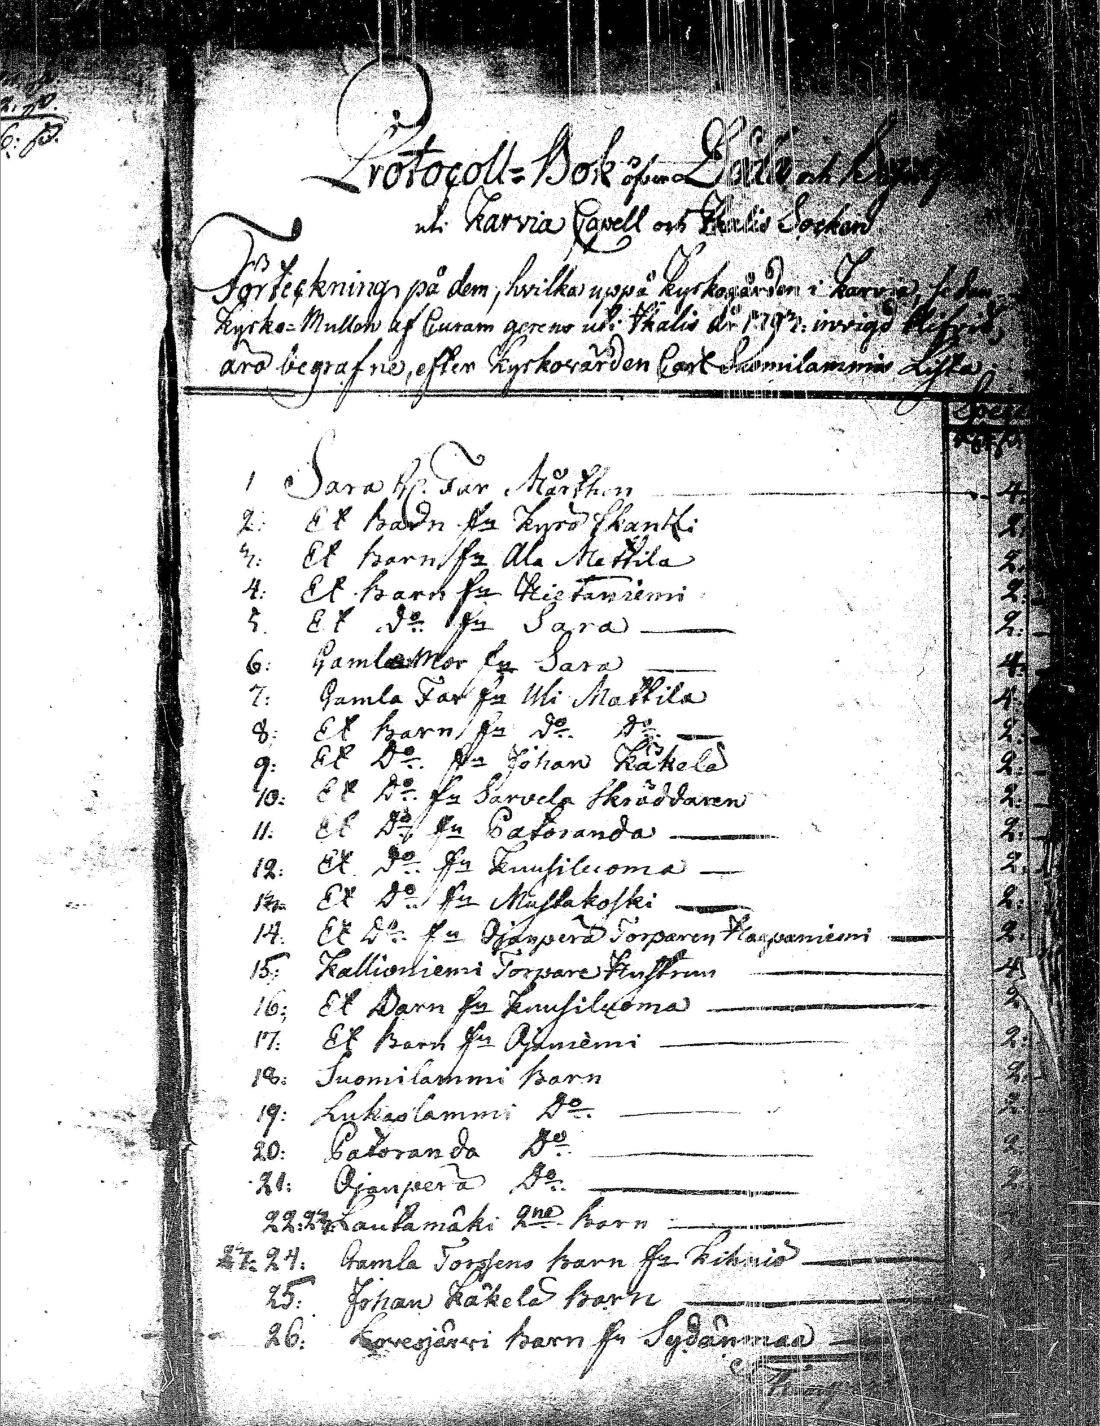 Protocoll-Bok öfwer Döda och
uti Karvia Capell och Ikalis Sochen
Förteckning på dem, hvilka uppå Kyrkogården i Karvia, sedan
Kyrko-Mullen af Curam gerens uti Ikalis år 1793: invigd blifvit,
äro begrafne, efter Kyrkovärden Carl Suomilammis Lista
1 Sara Far Mårthen 4.
2: Et Barn fn Kyrö Skantzi 2:
3: Et Barn fn Ala Mattila 2.
4: Et Barn fn Hietaniemi 2:
5. Et Do: fn Sara 2:
6: Gamla Mor fn Sara 4:
7: Gamla Far fn Uli Mattila 4:
8: Et Barn fn Do: Do: 2:
9: Et Do: fn Johan Käkelä 2:
10: Et Do: fn Sarvela Skräddaren 2:
11: Et Do: fn Patoranda 2:
12: Et Do: fn Kuusiluoma 2.
13: Et Do: fn Mustakoski 2:
14: Et Do: fn Ojanperä Torparen Haapaniemi 2:
15: Kallioniemi Torpare Hustrun 4
16: Et Barn fn Kuusiluoma 2
17: Et Barn fn Ojaniemi 2:
18: Suomilammi Barn 2.
19: Lukaslammi Do: 2:
20: Patoranda Do: 2
21: Ojanperä Do: 2
22:23: Lautamäki 2ne Barn
24: Gamla Barn fn Kihniö
25: Johan Käkelä Barn
26: Kovesjärvi Barn fn Sydänmaa